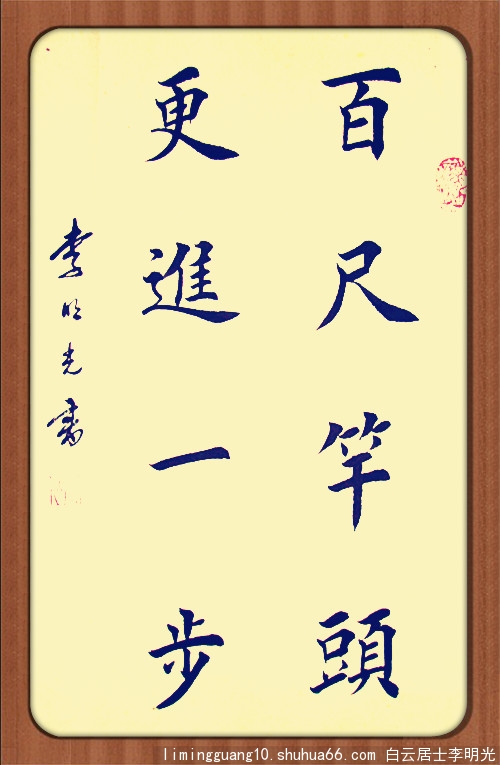 百尺竿頭
更進一步
李明光書
limingguang10.shuhua66.com 白云居士李明光